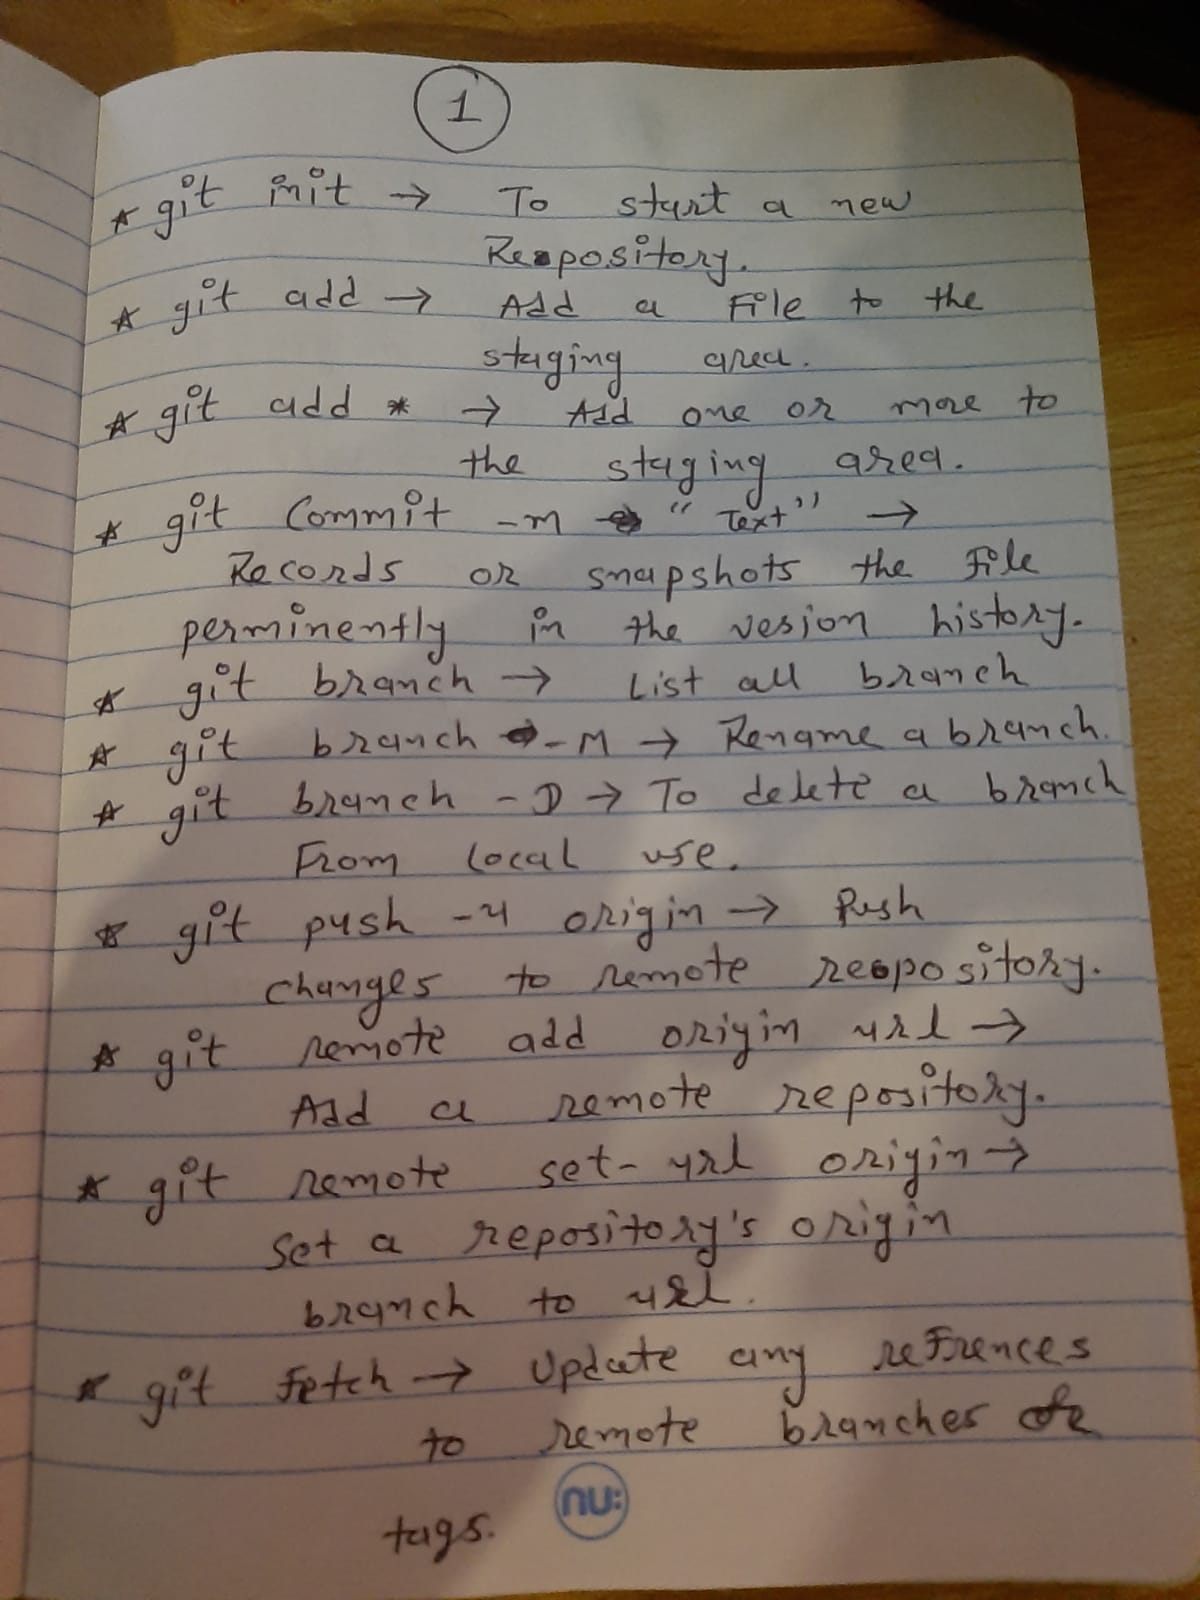 1
* git init → To start a new
Reopository.
* git add → Add a File to the
staging area.
* git add * → Add one or more to
the staging area.
* git Commit -m "Text" →
Records or snapshots the File
perminently in the vesion history.
* git branch → List all branch
* git branch -M → Rename a branch.
* git branch -D → To delete a branch
From local use.
* git push -u origin → Push
changes to remote reopository.
* git remote add origin url →
Add a remote repository.
* git remote set-url origin →
Set a repository's origin
branch to url.
* git Fetch → Update any reFrences
to remote branches or
tags.
nu: